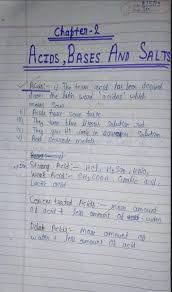 Chapter-2
ACIDS, BASES AND SALTS
Acids:- The term acid has been derived
from the latin word acidus which
means sour
i) Acids have sour taste
ii) They turn blue litmus solution red
iii) They give H+ ions in solution
iv) And corrode metals
Strong Acid:- HCl, H2SO4, HNO3
Weak Acids:- CH3COOH, Oxalic acid,
Lactic acid
Concentrated Acids:- More amount
of acid + less amount of water
Dilute Acids:- More amount of
water + less amount of acid